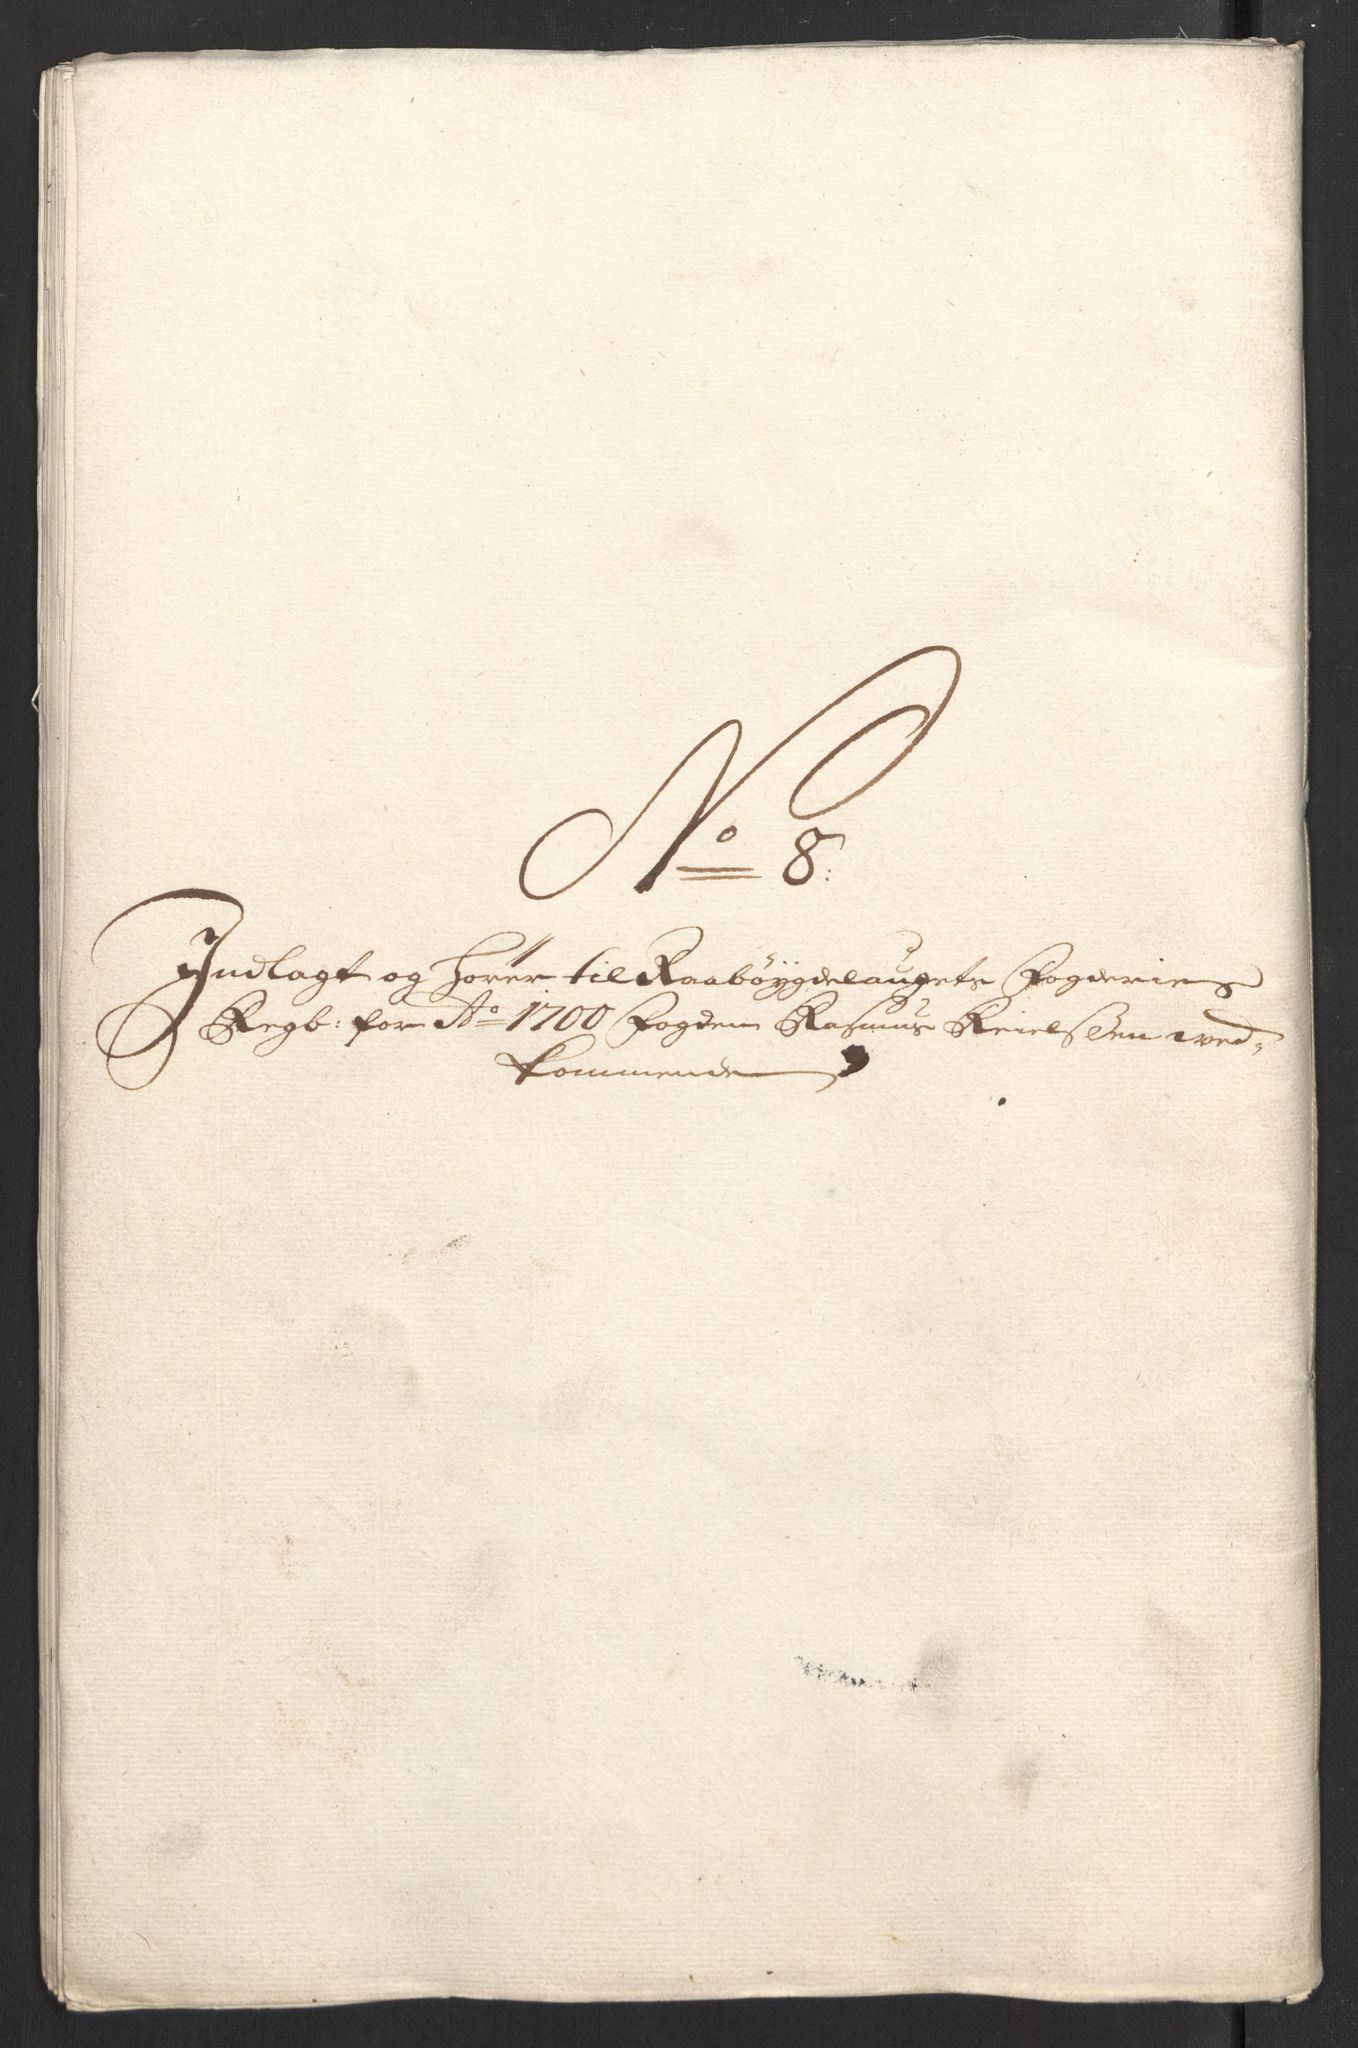 No 8:
Indlagt og hører til Raabøygdelaugets Fogderies
Regb: for Ao 1700 Fogden Rasmus Keielssen ved-
kommende